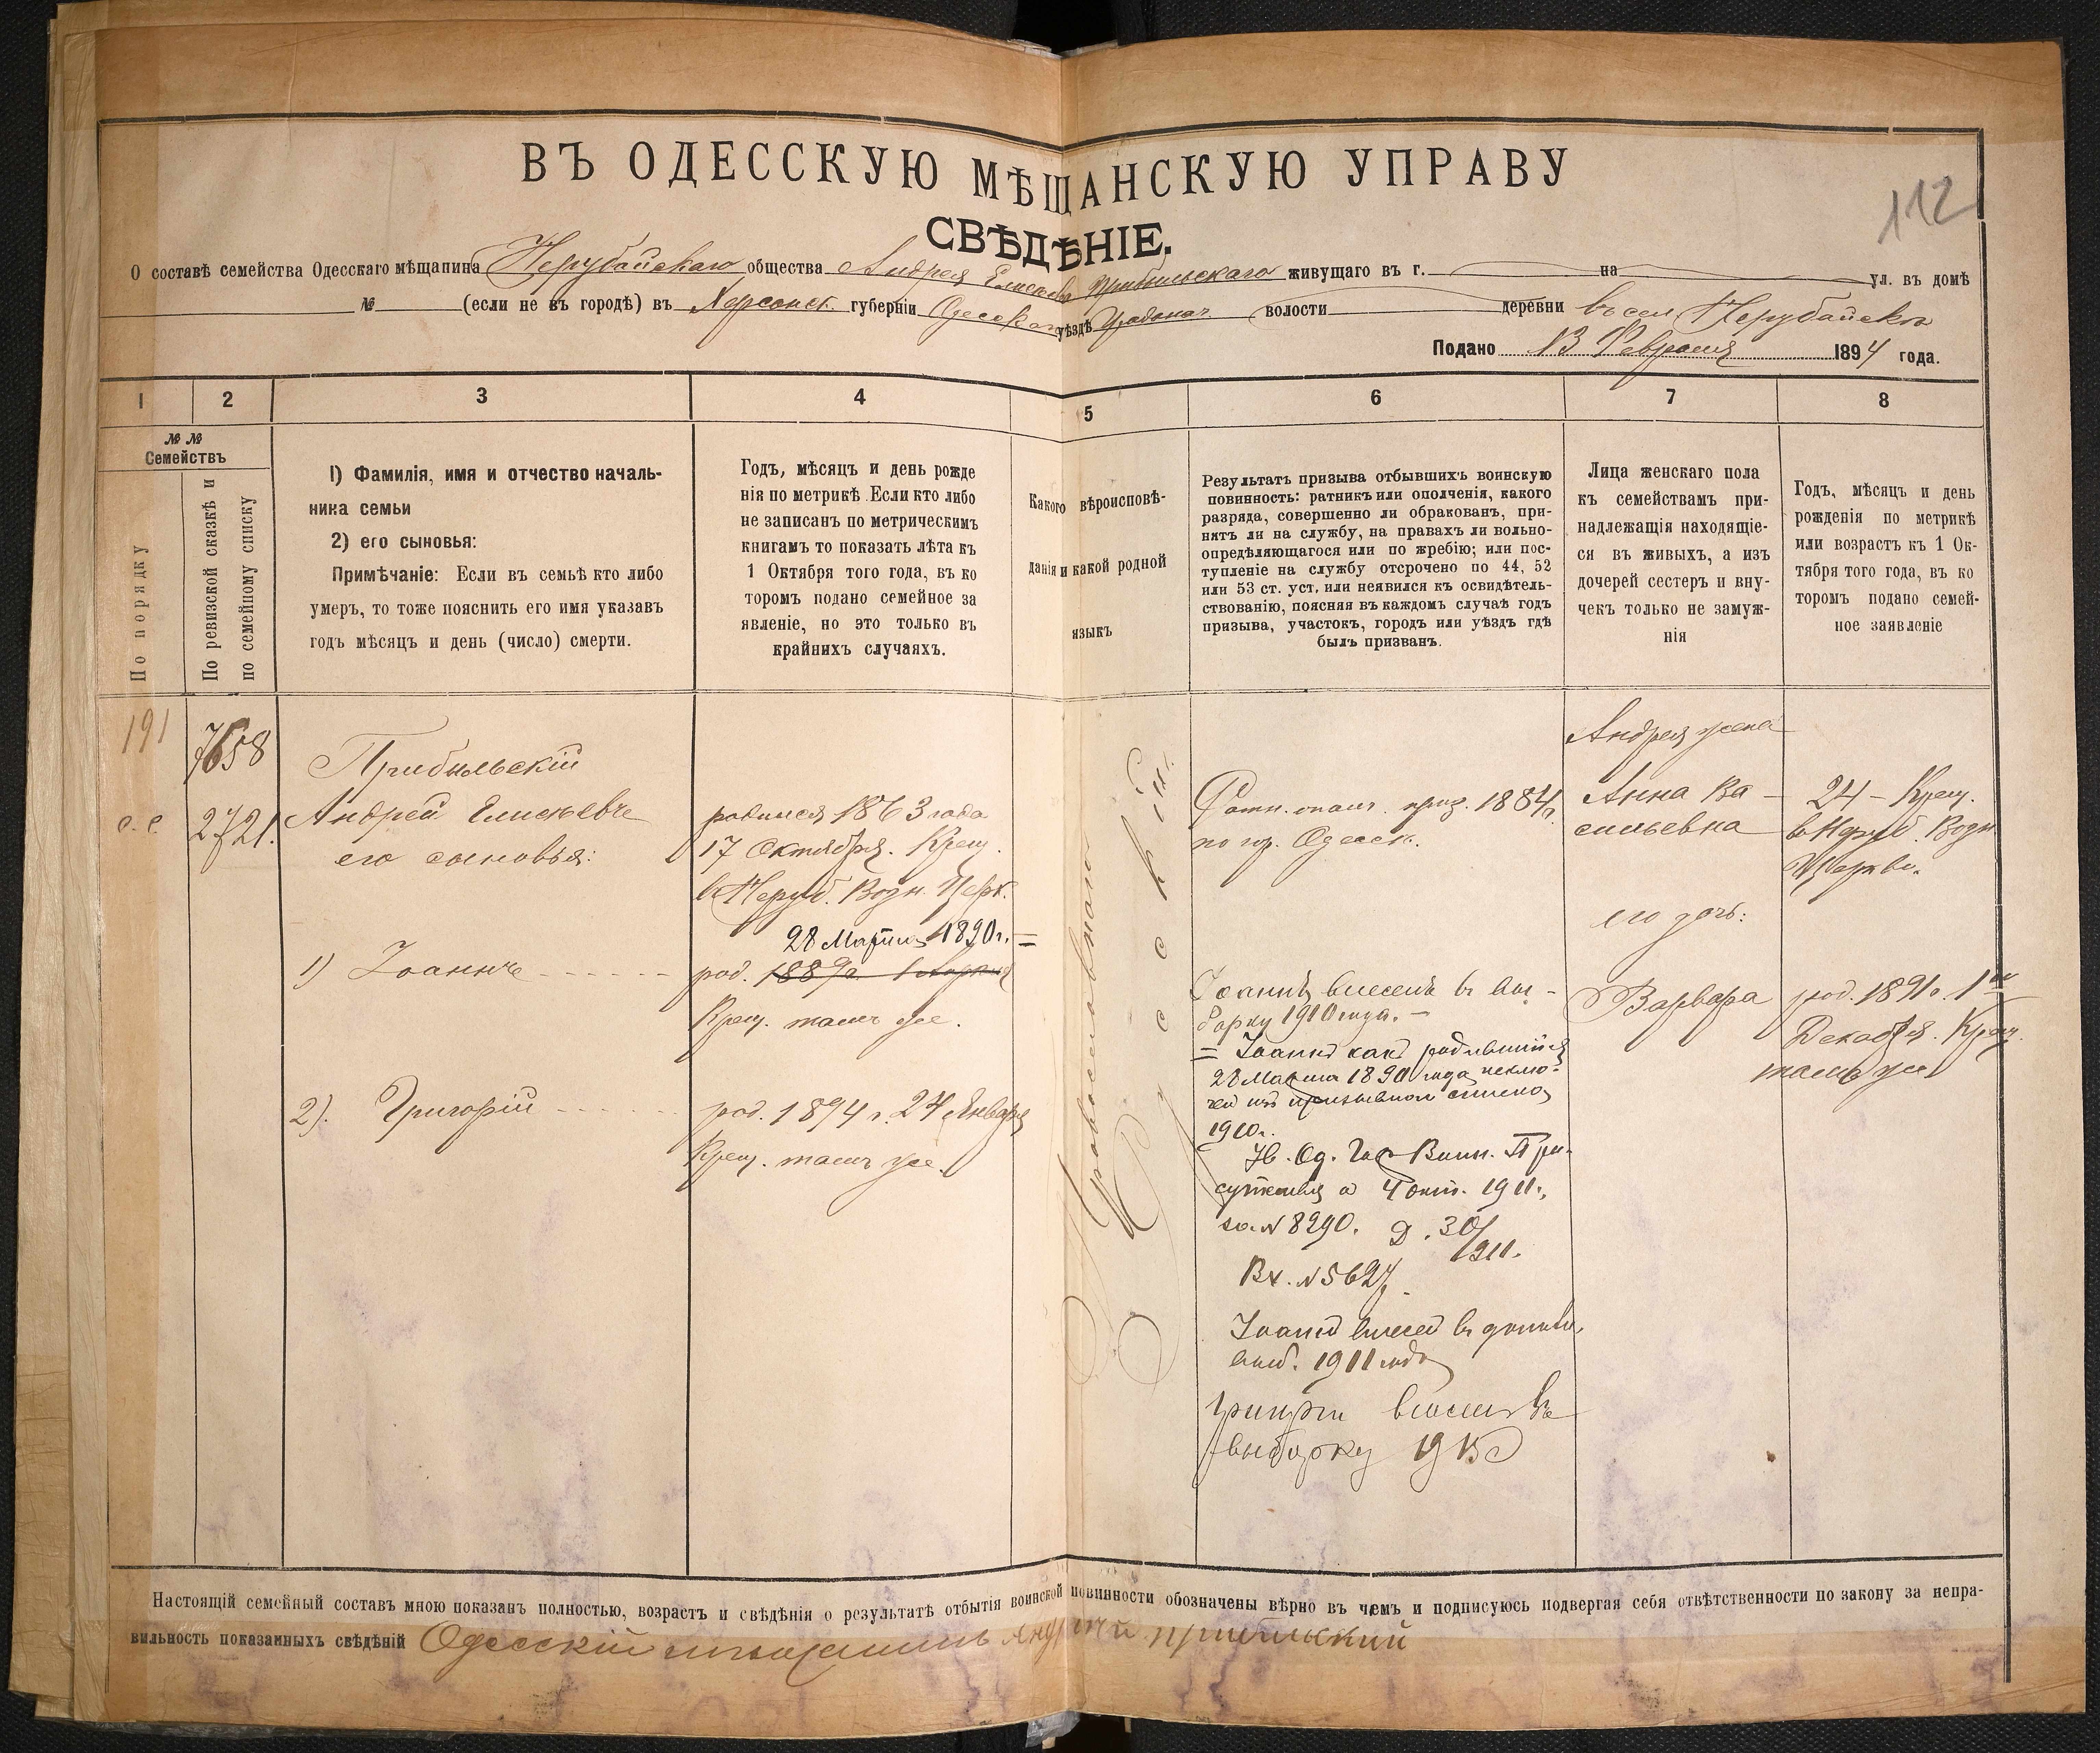 112
ВЪ ОДЕССКУЮ МѢЩАНСКУЮ УПРАВУ
СВѢДѢНІЕ.
О составѣ семейства Одесскаго мѣщанина Нерубайскаго общества Андрея Елисѣева Прибыльскаго живущаго въ г. на ул. въ домѣ
№ (если не въ городѣ) въ Херсонск. губерніи Одесскаго уѣздѣ Градонач. волости деревни въ сел. Нерубайскъ
Подано 13 Февраля 1894 года.
1 2 3 4 5 6 7 8
№ № Семействъ
По порядку
По ревизской сказкѣ и
по семейному списку
1) Фамилія, имя и отчество началь-
ника семьи
2) его сыновья:
Примѣчаніе: Если въ семьѣ кто либо
умеръ, то тоже пояснить его имя указавъ
годъ мѣсяцъ и день (число) смерти.
Годъ, мѣсяцъ и день рожде
нія по метрикѣ. Если кто либо
не записанъ по метрическимъ
книгамъ то показать лѣта къ
1 Октября того года, въ ко
торомъ подано семейное за
явленіе, но это только въ
крайнихъ случаяхъ.
Какого вѣроисповѣ-
данія и какой родной
языкъ
Результатъ призыва отбывшихъ воинскую
повинность: ратникъ или ополченія, какого
разряда, совершенно ли обракованъ, при-
нятъ ли на службу, на правахъ ли вольно-
опредѣляющагося или по жребію; или пос-
тупленіе на службу отсрочено по 44, 52
или 53 ст. уст. или неявился къ освидѣтель-
ствованію, поясняя въ каждомъ случаѣ годъ
призыва, участокъ, городъ или уѣздъ гдѣ
былъ призванъ.
Лица женскаго пола
къ семействамъ при-
надлежащія находящіе-
ся въ живыхъ, а изъ
дочерей сестеръ и вну-
чекъ только не замуж-
нія
Годъ, мѣсяцъ и день
рожденія по метрикѣ
или возрастъ къ 1 Ок-
тября того года, въ ко
торомъ подано семей-
ное заявленіе
191
7658
с. с.
2721.
Прибыльскій
Андрей Елисѣевъ
его сыновья:
1) Іоаннъ
2). Григорій
родился 1863 года
17 Октября. Крещ.
в Неруб. Возн. Церк.
28 Марта 1890 г. =
род. 1889 г.
Крещ. тамъ же.
род. 1894 г. 24 Января
Крещ. тамъ же.
Православнаго
Русскій.
Ратн. опол. приз. 1884 г.
по гор. Одесск.
Іоаннъ внесенъ въ вы-
борку 1910 года. -
= Іоаннъ какъ родившійся
28 Марта 1890 года исклю-
чен изъ призывнаго списка
1910 г.
Ув. Од. Гор. Воин. При-
сутствія о 4 окт. 1911 г.,
за № 8290. Д. 30/1911.
Вх. № 5627.
Іоаннъ внесен въ
1911 года
Григорій внесенъ въ
выборку 1915
Андрея жена
Анна Ва-
сильевна
его дочь:
Варвара
24 - Крещ.
въ Неруб. Возн.
Церкви.
род. 1891 г. 1го
Декабря. Крещ.
тамъ же
Настоящій семейный составъ мною показанъ полностью, возрастъ и свѣдѣнія о результатѣ отбытія воинской повинности обозначены вѣрно въ чемъ и подписуюсь подвергая себя отвѣтственности по закону за непра-
вильность показанныхъ свѣдѣній Одесскій мѣщанинъ Андрей Прибильский